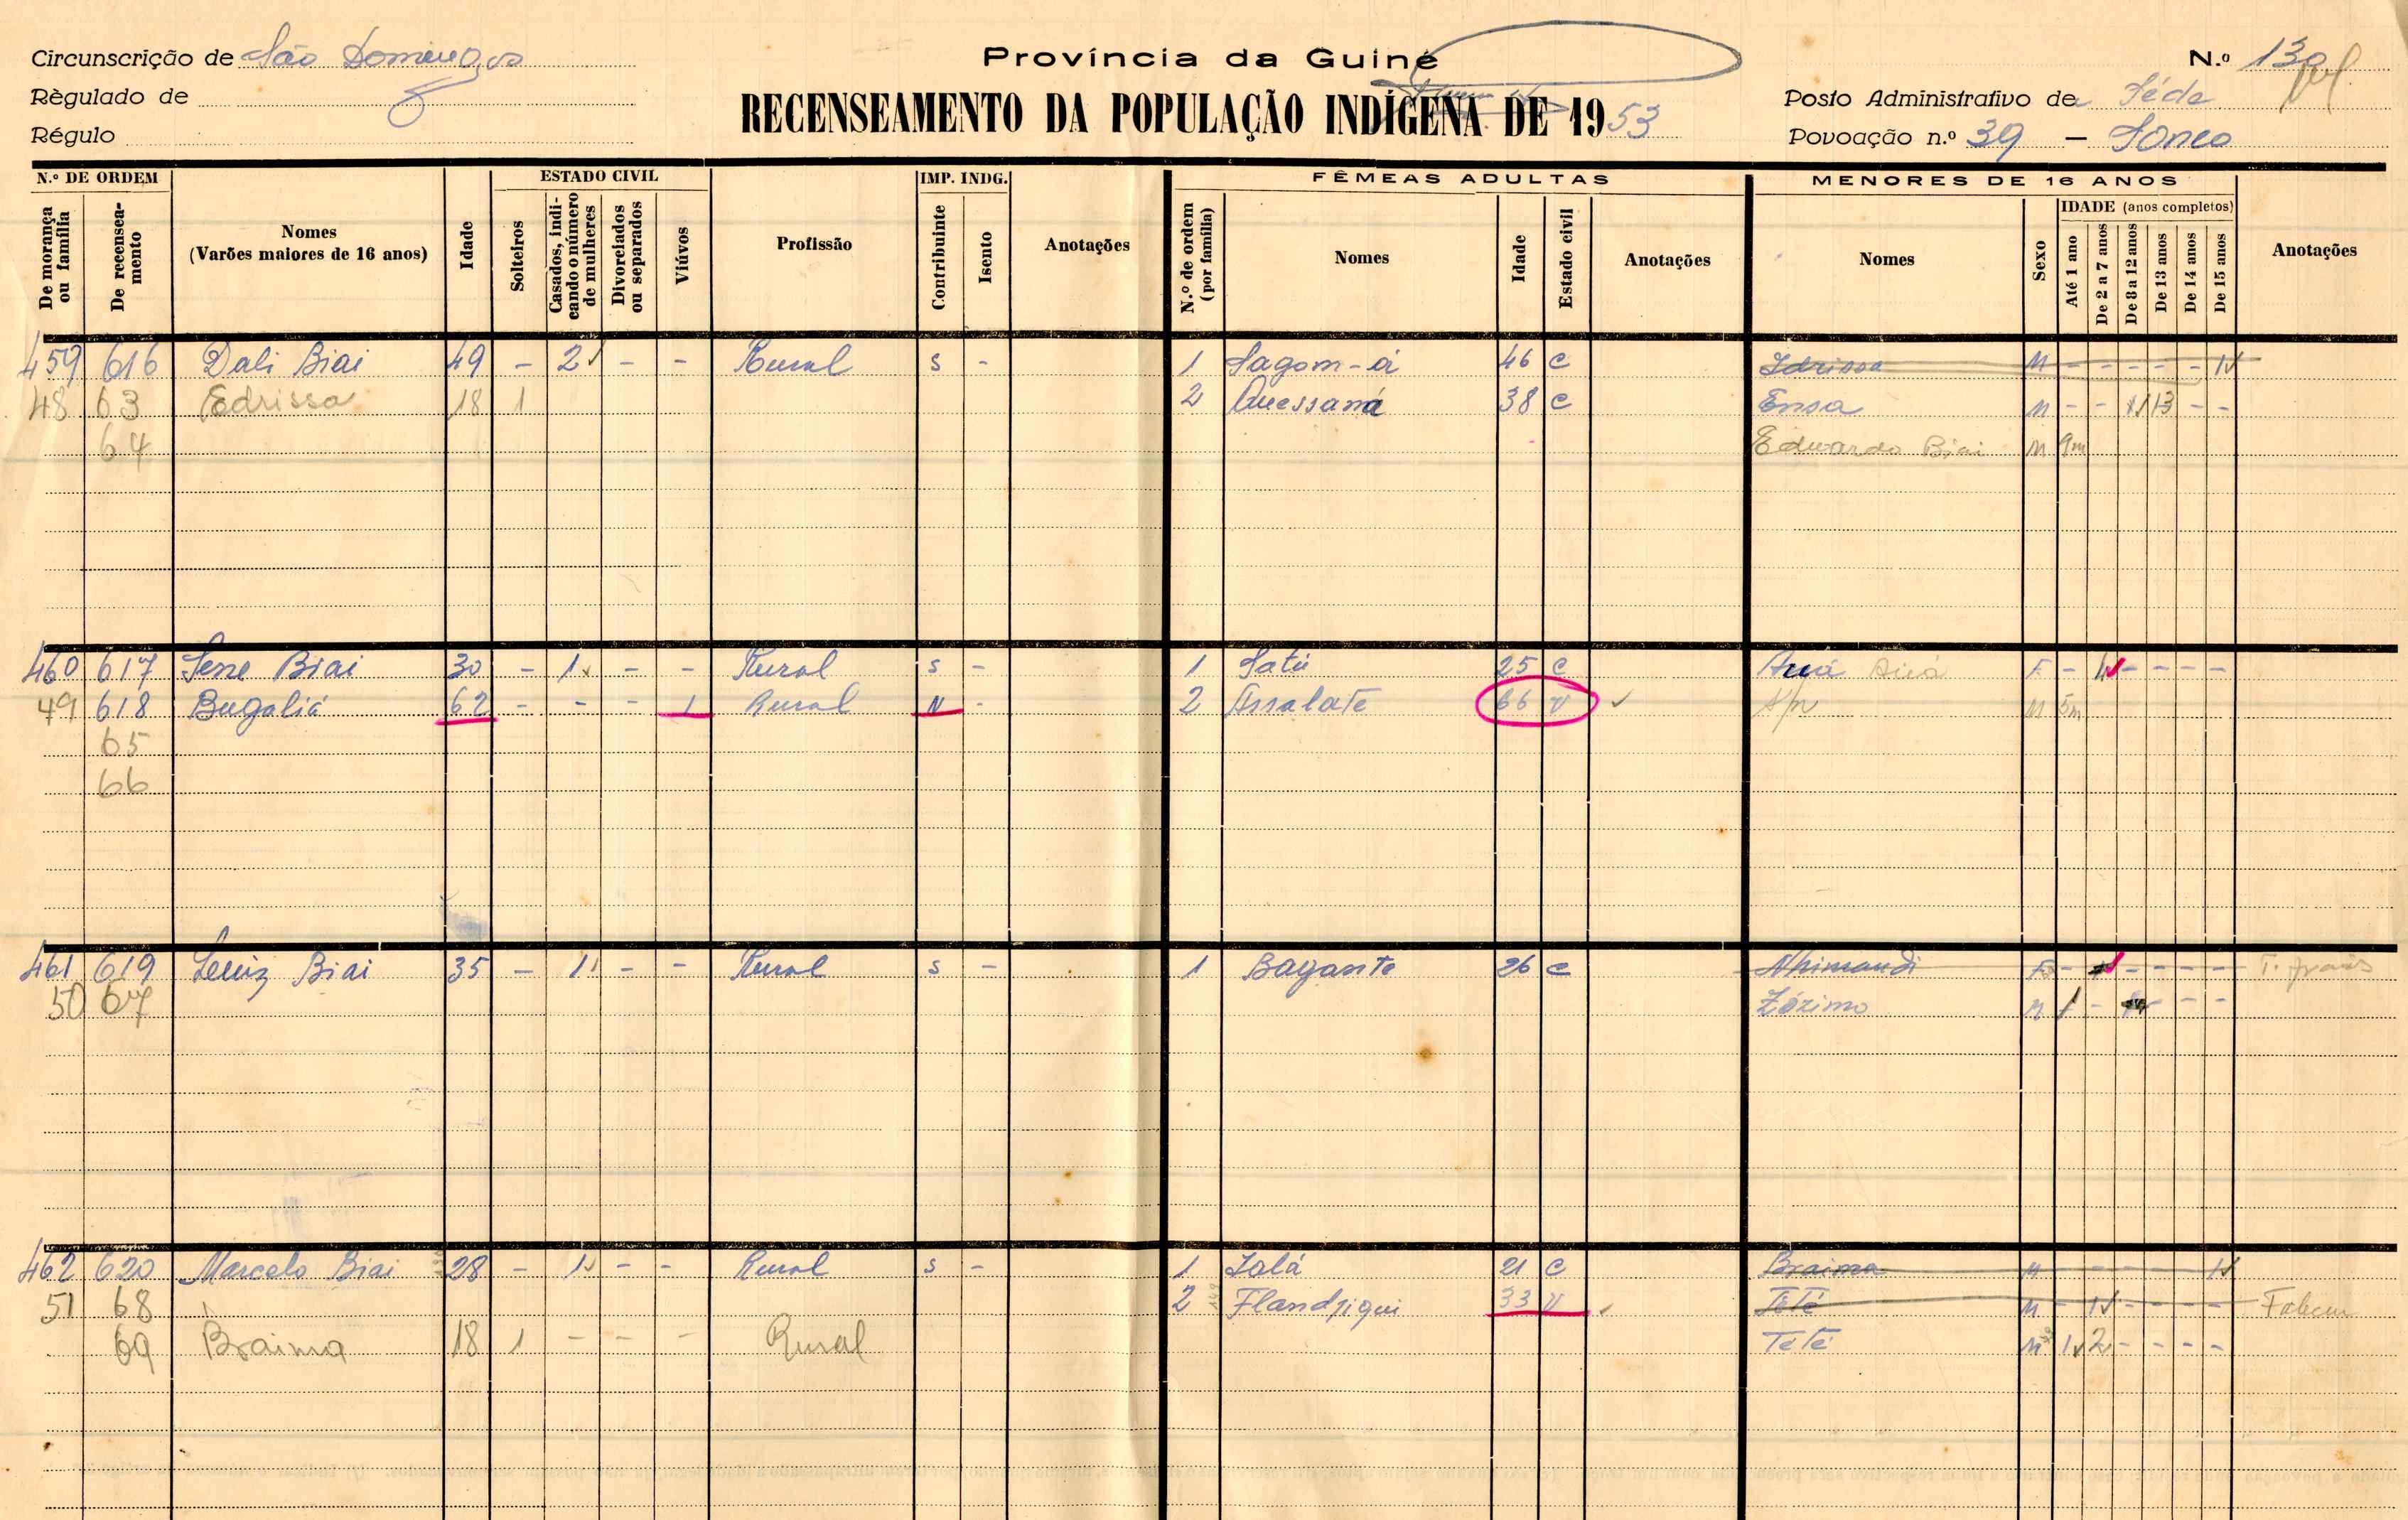 Província da Guiné
Circunscrição de São Domingos
Règulado de
Régulo
RECENSEAMENTO DA POPULAÇÃO INDÍGENA DE 1953
N.º 130
Posto Administrativo de Séde
Povoação n.º 39 —
N.º DE ORDEM
De morança ou família
De recenseamento
Nomes
(Varões maiores de 16 anos)
Idade
ESTADO CIVIL
Solteiros
Casados, indicando o número de mulheres
Divorciados ou separados
Viúvos
Profissão
IMP. INDG.
Contribuinte
Isento
Anotações
FÊMEAS ADULTAS
N.º de ordem (por família)
Nomes
Idade
Estado civil
Anotações
MENORES DE 16 ANOS
Nomes
Sexo
IDADE (anos completos)
Até 1 ano
De 2 a 7 anos
De 8 a 12 anos
De 13 anos
De 14 anos
De 15 anos
Anotações
459 616 Dali Biai 49 - 2 - - Rural s - 1 Sagom-á 46 C Idrissa M - - - - - 1
48 63 Edrissa 18 1 2 Quessaná 38 C Ensa M - - 1 13 - -
64 Eduardo Biai M 9m
460 617 Sene Biai 30 - 1 - - Rural s - 1 Satú 25 C Auá F - 4 - - - -
49 618 Bugaliá 62 - - - 1 Rural N - 2 Assalate 66 V M 5m
65
66
461 619 Biai 35 - 1 - - Rural s - 1 Bagante 26 C Nhimandi F - - - - -
50 67 Zózimo M 1 - - - -
462 620 Marcelo Biai 28 - 1 - - Rural s - 1 Jalá 21 C Braima M - - - - - 1
51 68 2 Flandjigui 33 V Teté M - 1 - - - -
69 Braima 18 1 - - - Rural Teté M 1 2 - - - -